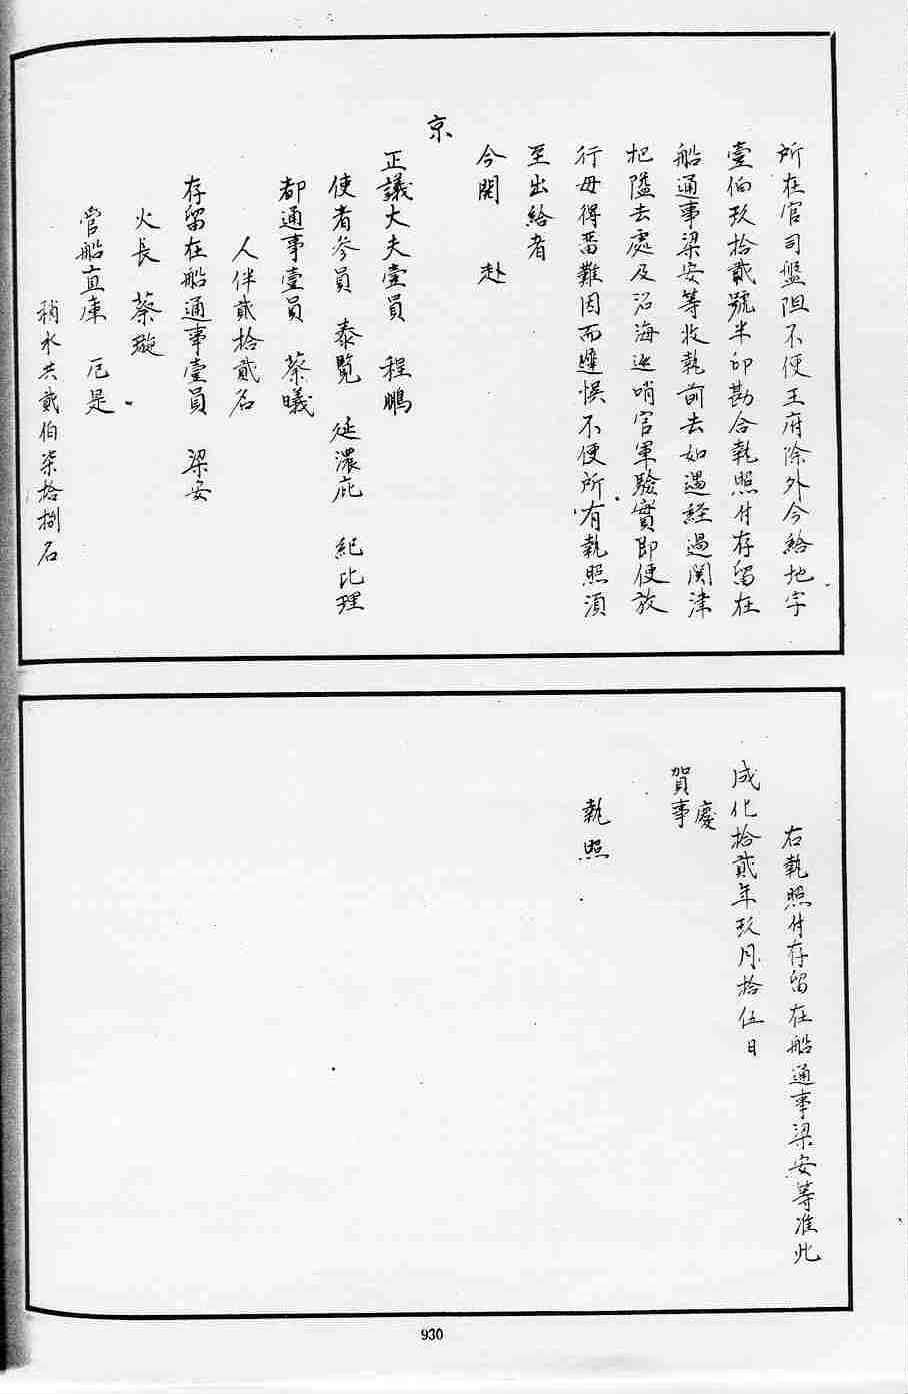 所在官司盤阻不便王府除外今給地字
壹伯玖拾貳號半印勘合執照付存留在
船通事梁安等收執前去如遇經過関津
把隘去處及沿海巡哨官軍驗實即便放
行毋得留難因而遲悮不便所有執照須
至出給者
今開 赴
京
正議大夫壹員 程鵬
使者參員 泰覽 延濃庇 紀比理
都通事壹員 蔡曦
人伴貳拾貳名
存留在船通事壹員 梁安
火長 蔡璇
管船直庫 厄是
稍水共貳伯柒拾捌名
右執照付存留在船通事梁安等准此
成化拾貳年玖月拾伍日
慶
賀事
執照
930